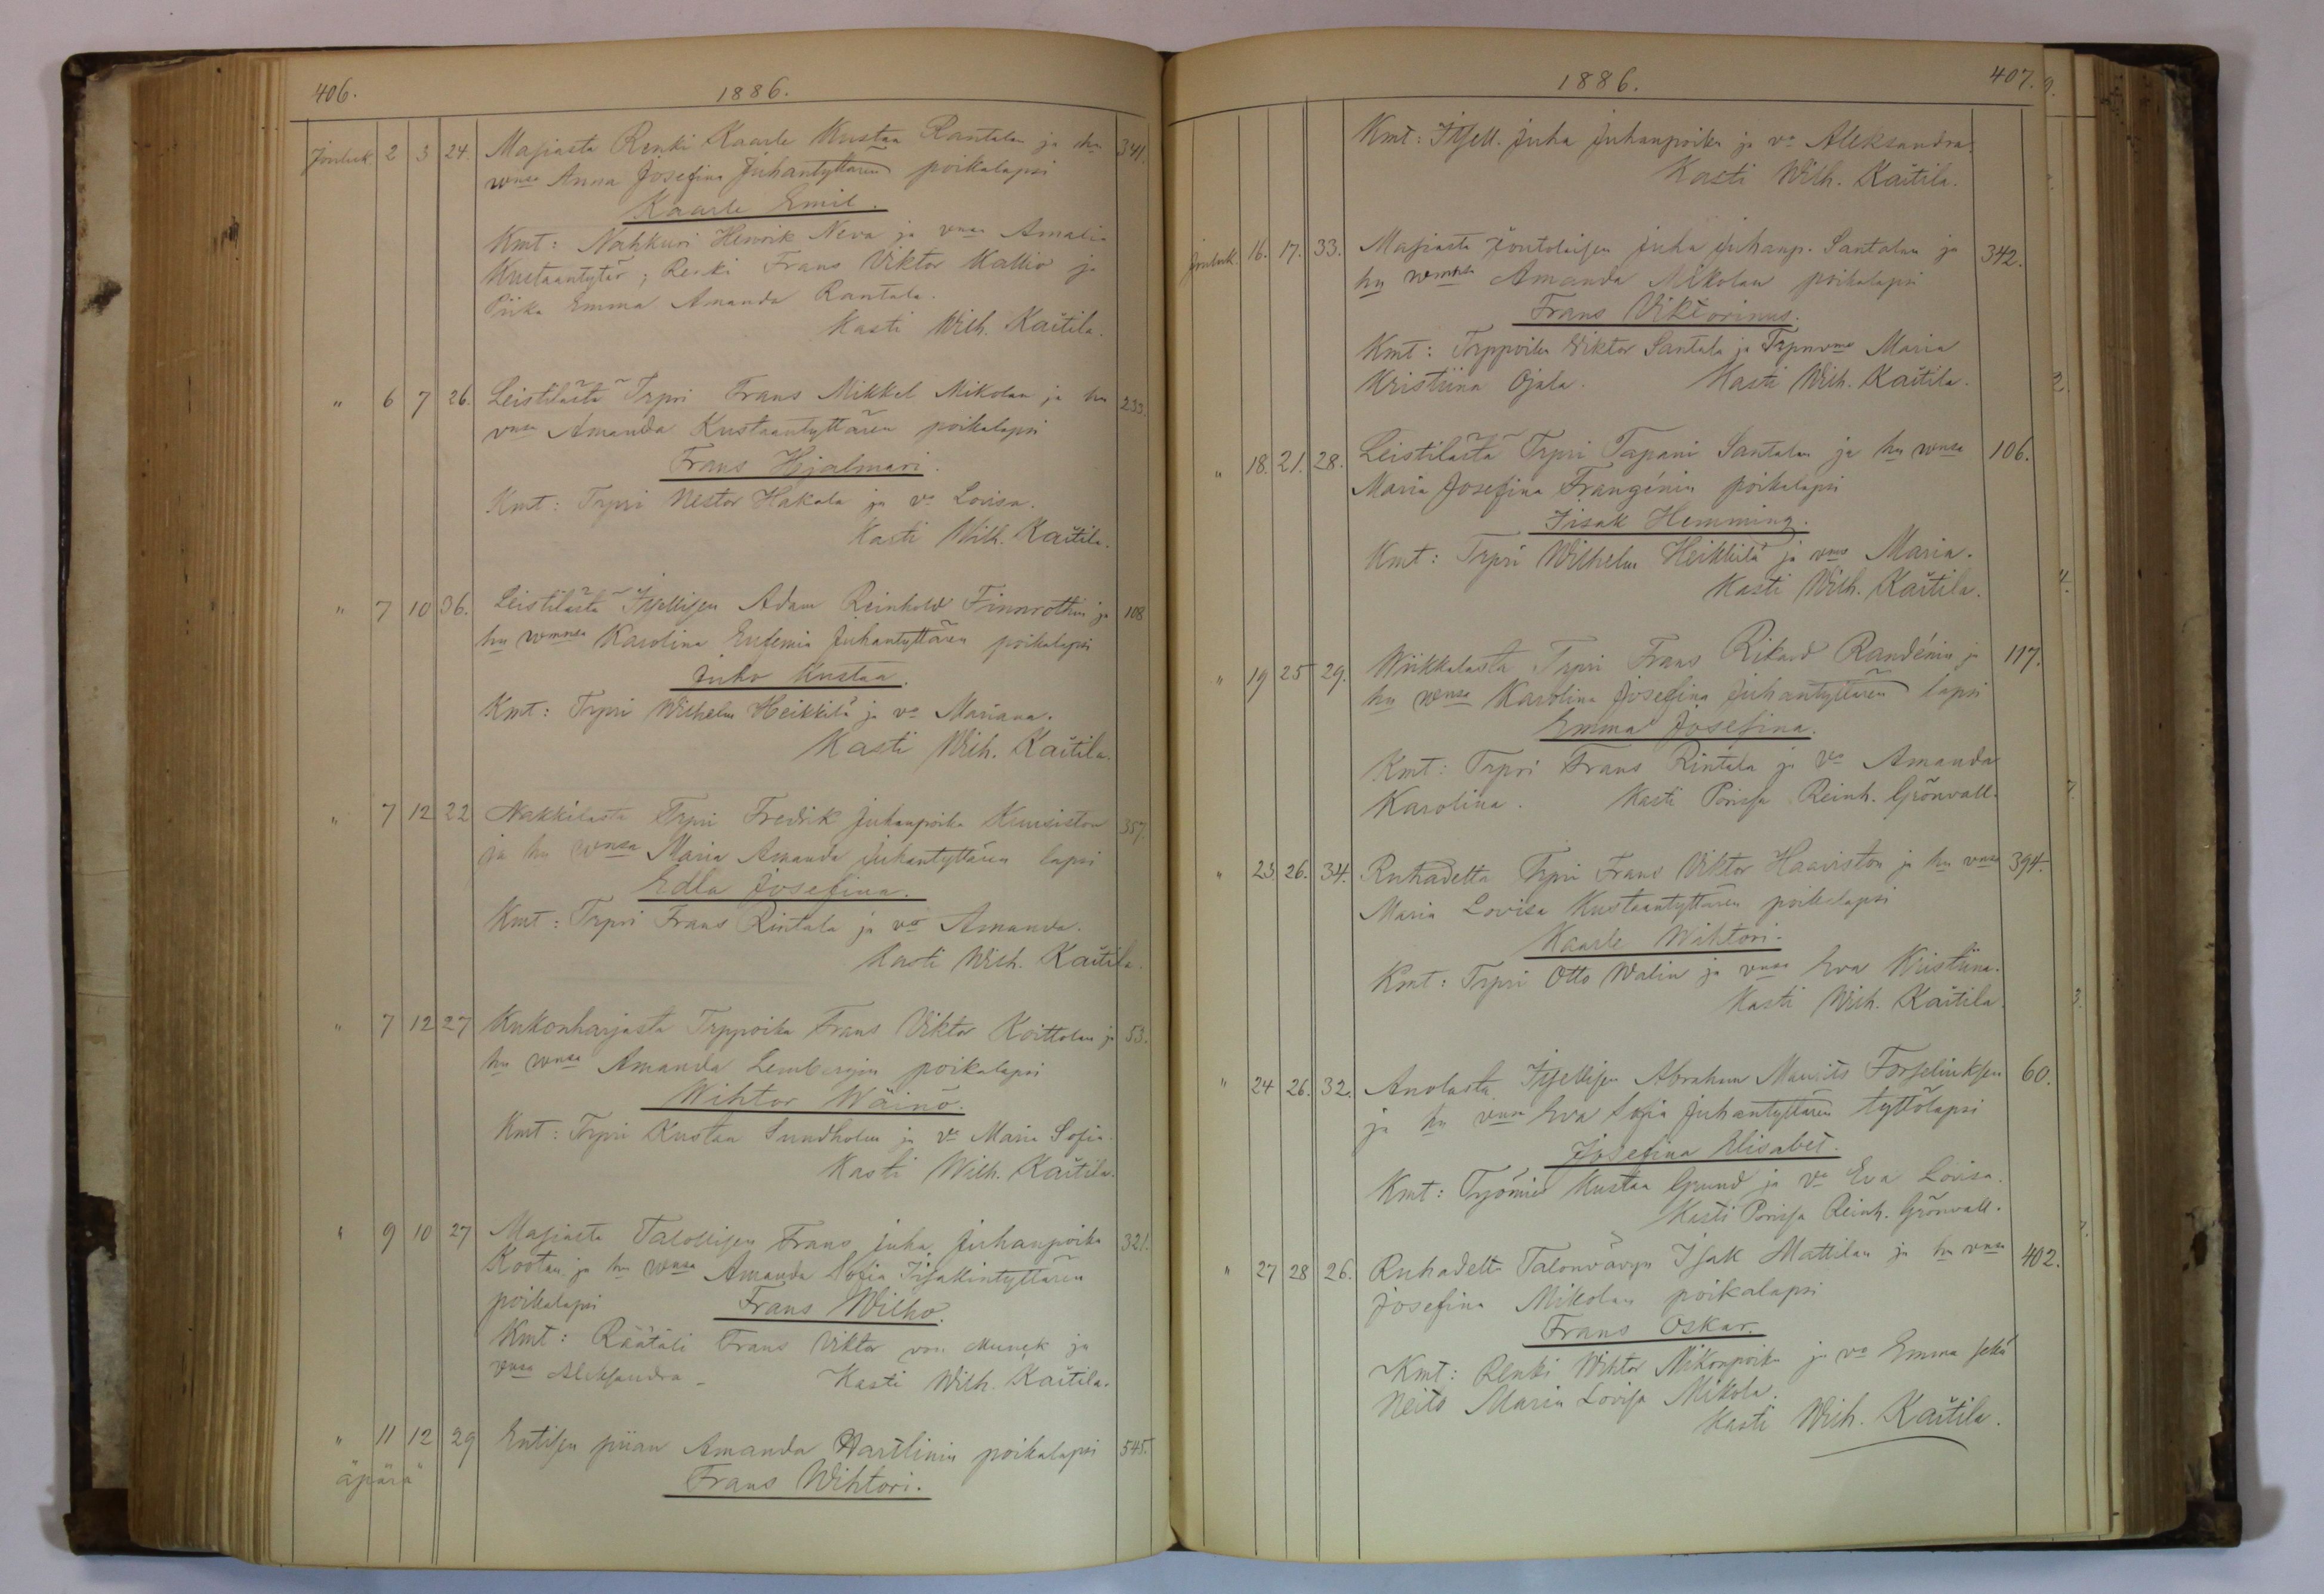 406.
1886.
Jouluk. 2 3 24. Masiasta Renki Kaarle Kustaa Rantalan ja hn 341.
wnsa Anna Josefina Juhantyttären poikalapsi
Kaarle Emil.
Kmt: Nahkuri Henrik Neva ja vnsa Amalia
Kustaantytär; Renki Frans Viktor Kallio ja
Piika Emma Amanda Rantala.
Kasti Wilh. Kaitila.
" 6 7 26. Leistilästä Trpri Frans Mikkel Mikolan ja hn 233.
vnsa Amanda Kustaantyttären poikalapsi
Frans Hjalmari.
Kmt: Trpri Nestor Hakala ja va Lovisa.
Kasti Wilh. Kaitila.
" 7 10 36. Leistilästä Itsellisen Adam Reinhold Finnrothin ja 108
hn wmnsa Karolina Eufemia Juhantyttären poikalapsi
Juho Kustaa.
Kmt: Trpri Wilhelm Heikkilä ja va Mariana.
Kasti Wilh. Kaitila.
" 7 12 22 Nakkilasta Trpri Fredrik Juhanpoika Kuusiston 357.
ja hn wnsa Maria Amanda Juhantyttären lapsi
Edla Josefina.
Kmt: Trpri Frans Rintala ja va Amanda.
Kasti Wilh. Kaitila.
" 7 12 27 Kukonharjasta Trppoika Frans Viktor Koittolan ja 53.
hn wnsa Amanda Lembergin poikalapsi
Wihtor Wäinö.
Kmt: Trpri Kustaa Sundholm ja va Maria Sofia.
Kasti Wilh. Kaitila.
" 9 10 27 Masiasta Talollisen Frans Juha Juhanpoika 321.
Kootan ja hn wnsa Amanda Sofia Iisakintyttären
poikalapsi Frans Wilho.
Kmt: Räätäli Frans Viktor von Munck ja
vnsa Aleksandra - Kasti Wilh. Kaitila.
" 11 12 29 Entisen piian Amanda Hartlinin poikalapsi 545.
äpärä Frans Wihtori.
1886.
407.
Kmt: Itsell. Juha Juhanpoika ja va Aleksandra.
Kasti Wilh. Kaitila.
Jouluk. 16. 17. 33. Masiasta Juha Juhanp. Santalan ja 342.
hn wmnsa Amanda Mikolan poikalapsi
Frans Viktorinus.
Kmt: Trppoika Viktor Santala ja Trpnvmo Maria
Kristiina Ojala. Kasti Wilh. Kaitila.
" 18. 21. 28. Leistilästä Trpri Tapani Santalan ja hn wnsa 106.
Maria Josefina Frangénin poikalapsi
Iisak Hemming.
Kmt: Trpri Wilhelm Heikkilä ja vmo Maria.
Kasti Wilh. Kaitila.
" 19 25 29. Wiikkalasta Trpri Frans Rikard Randénin ja 117.
hn wnsa Karolina Josefina Juhantyttären lapsi
Emma Josefina.
Kmt: Trpri Frans Rintala ja va Amanda
Karolina. Kasti Porissa Reinh. Grönvall.
" 23 26. 34. Ruhadetta Trpri Frans Viktor Haaviston ja hn vnsa 394.
Maria Lovisa Kustaantyttären poikalapsi
Kaarle Wihtori.
Kmt: Trpri Otto Walin ja vnsa Eva Kristiina.
Kasti Wilh. Kaitila.
" 24 26. 32. Anolasta Itsellisen Abraham Maurits Forseliuksen 60.
ja hn vnsa Eva Sofia Juhantyttären tyttölapsi
Josefina Elisabet.
Kmt: Työmies Kustaa Grund ja va Eva Lovisa.
Kasti Porissa Reinh. Grönvall.
" 27 28 26. Ruhadetta Talonvävyn Isak Mattilan ja hn vnsa 402.
Josefina Mikolan poikalapsi
Frans Oskar.
Kmt: Renki Wihtor Mikonpoika ja va Emma sekä
Neito Maria Lovisa Mikola.
Kasti Wilh. Kaitila.